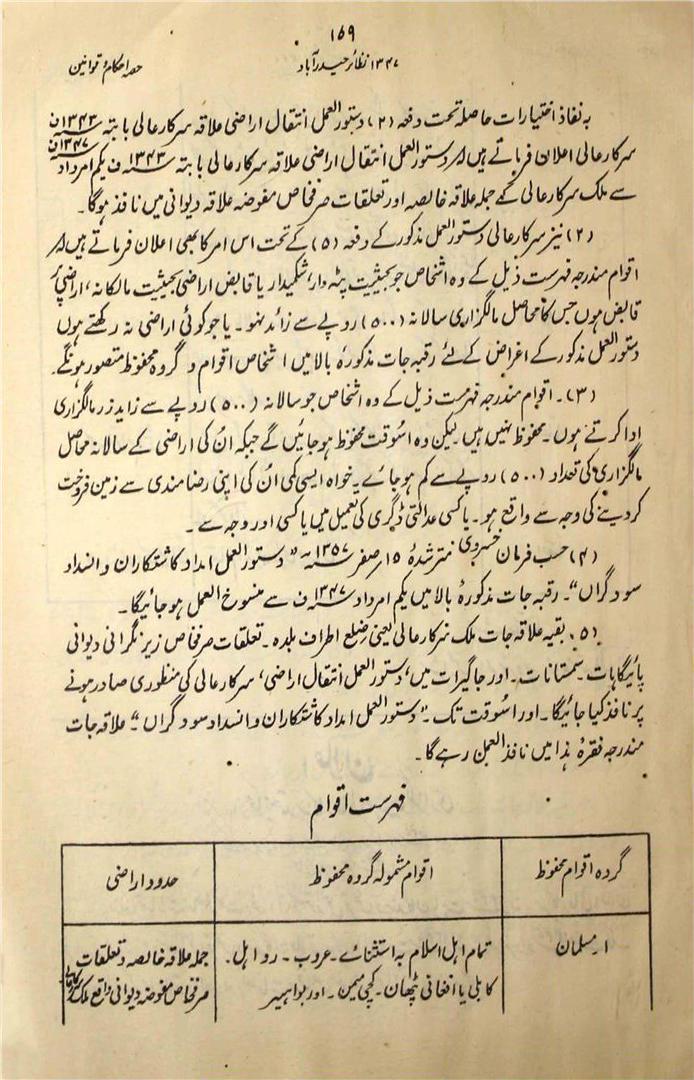 ۱۵۹
۱۳۴۷ نظائر حیدرآباد
حصہ احکام و قوانین
بہ نفاذ اختیارات حاصلہ تحت دفعہ (۲) دستور العمل انتقال اراضی علاقہ سرکار عالی بابتہ ۱۳۴۳ ف
سرکار عالی اعلان فرماتے ہیں کہ دستور العمل انتقال اراضی علاقہ سرکار عالی بابتہ ۱۳۴۳ ف یکم امرداد ۱۳۴۷ ف
سے ملک سرکار عالی کے جملہ علاقہ خالصہ اور تعلقات صرفخاص مفوضہ علاقہ دیوانی میں نافذ ہوگا۔
(۲) نیز سرکار عالی دستور العمل مذکور کے دفعہ (۵) کے تحت اس امر کا بھی اعلان فرماتے ہیں کہ
اقوام مندرجہ فہرست ذیل کے وہ اشخاص جو بحیثیت پٹہ دار، شکمیدار یا قابض اراضی بحیثیت مالکانہ، اراضی پر
قابض ہوں جس کا محاصل مالگزاری سالانہ (۵۰۰) روپے سے زائد نہو۔ یا جو کوئی اراضی نہ رکھتے ہوں
دستور العمل مذکور کے اغراض کے لئے رقبہ جات مذکورۂ بالا میں اشخاص اقوام و گروہ محفوظ متصور ہونگے۔
(۳)۔ اقوام مندرجہ فہرست ذیل کے وہ اشخاص جو سالانہ (۵۰۰) روپے سے زاید زر مالگزاری
ادا کرتے ہوں۔ محفوظ نہیں ہیں۔ لیکن وہ اسوقت محفوظ ہوجائیں گے جبکہ ان کی اراضی کے سالانہ محاصل
مالگزاری کی تعداد (۵۰۰) روپے سے کم ہوجائے۔ خواہ ایسی کمی ان کی اپنی رضامندی سے زمین فروخت
کردینے کی وجہ سے واقع ہو۔ یا کسی عدالتی ڈگری کی تعمیل میں یا کسی اور وجہ سے۔
(۴) حسب فرمان خسروی مترشدہ ۱۵ صفر ۱۳۵۷ ھ "دستور العمل امداد کاشتکاران و انسداد
سود گراں"۔ رقبہ جات مذکورۂ بالا میں یکم امرداد ۱۳۴۷ ف سے منسوخ العمل ہوجائیگا۔
(۵)۔ بقیہ علاقہ جات ملک سرکار عالی یعنی ضلع اطراف بلدہ۔ تعلقات صرفخاص زیر نگرانی دیوانی
پائیگاہات۔ سمستانات۔ اور جاگیرات میں، دستور العمل انتقال اراضی، سرکار عالی کی منظوری صادر ہونے
پر نافذ کیا جائیگا۔ اور اسوقت تک۔ "دستور العمل امداد کاشتکاران و انسداد سود گراں"۔ علاقہ جات
مندرجہ فقرۂ ہذا میں نافذ العمل رہے گا۔
فہرست اقوام
گروہ اقوام محفوظ
اقوام مشمولہ گروہ محفوظ
حدود اراضی
۱۔ مسلمان
تمام اہل اسلام بہ استثنائے۔ عروب۔ رواہل۔
کابلی یا افغانی پٹھان۔ کچھی میمن۔ اور بواہیر
جملہ علاقہ خالصہ و تعلقات
صرفخاص مفوضہ دیوانی واقع ملک سرکار عالی